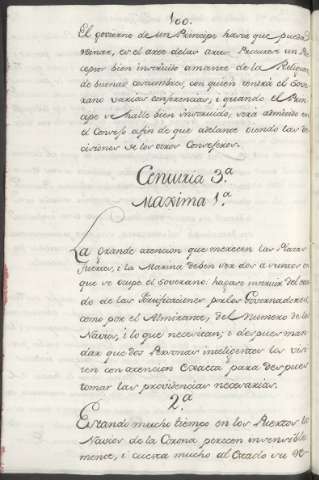 100.
El govierno de un Principe hara que pueda
reynar, es el arte delas artes. Precurese un Pre
ceptor bien instruido amante de la Religion,
de buenas costumbres, con quien tendrá el Sove
rano varias conferencias, i quando el Prin
cipe se halle bien instruido, será admitido en
el Consejo afin de que adelante oiendo las de
cisiones de los otros Consejeros.
Centuria 3.ª
Maxima 1.ª
La grande atencion que merecen las Plazas
fuertes, i la Marina deben ser dos asuntos en
que se ocupe el Soberano. hagase instruir del esta
do de las Fortificaciones por los Governadores,
como por el Almirante, del Numero de los
Navios, i lo que necesitan; i despues man
dar que dos Personas inteligentes los visi
ten con atencion exacta para despues
tomar las providencias necesarias.
2.ª
Estando mucho tiempo en los Puertos los
Navios de la Corona perecen insensible
mente, i cuesta mucho al Estado su re